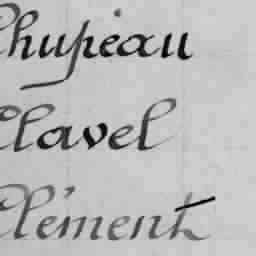 Chupeau
Clavel
Clément